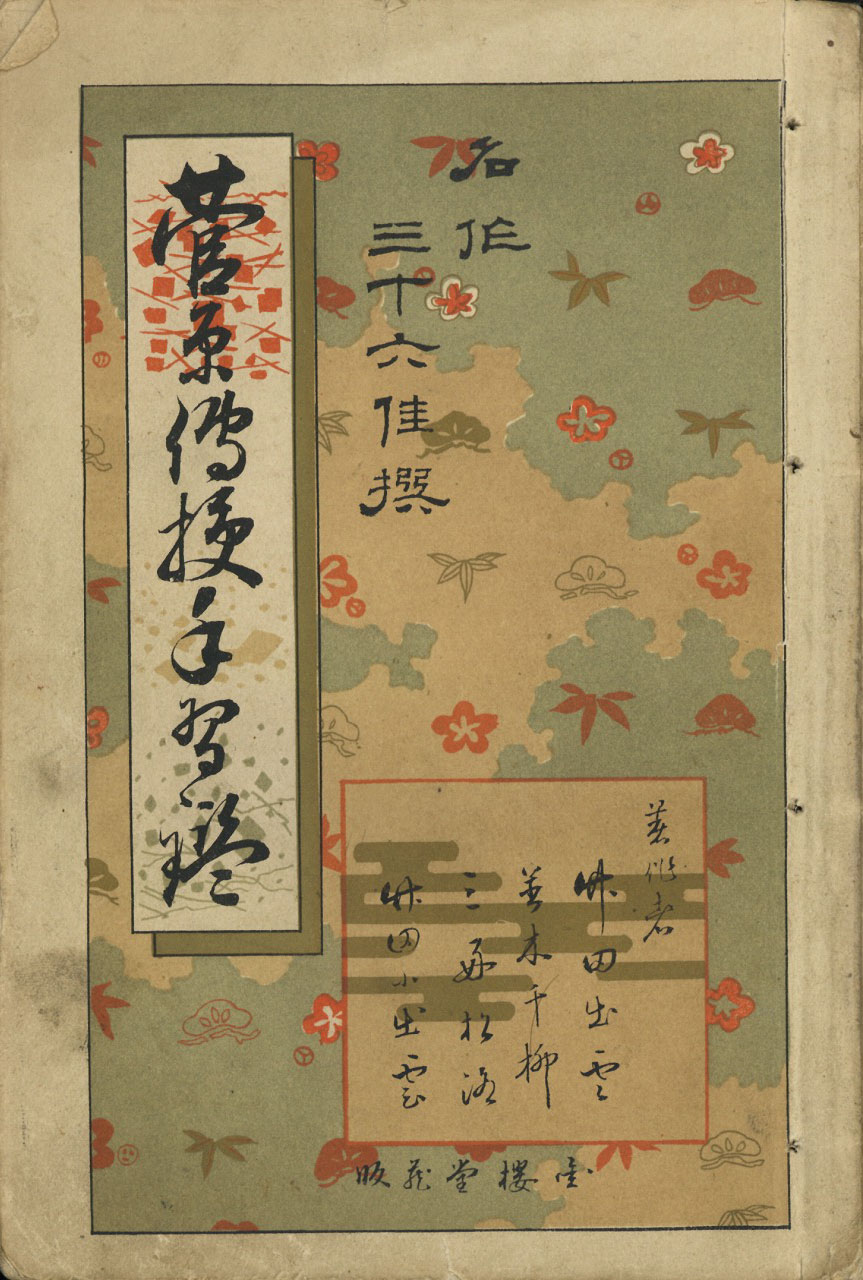 名作
三十六佳撰
菅原傳授手習鑑
著作者
竹田出雲
並木千柳
三好松洛
竹田小出雲
金櫻堂蔵版